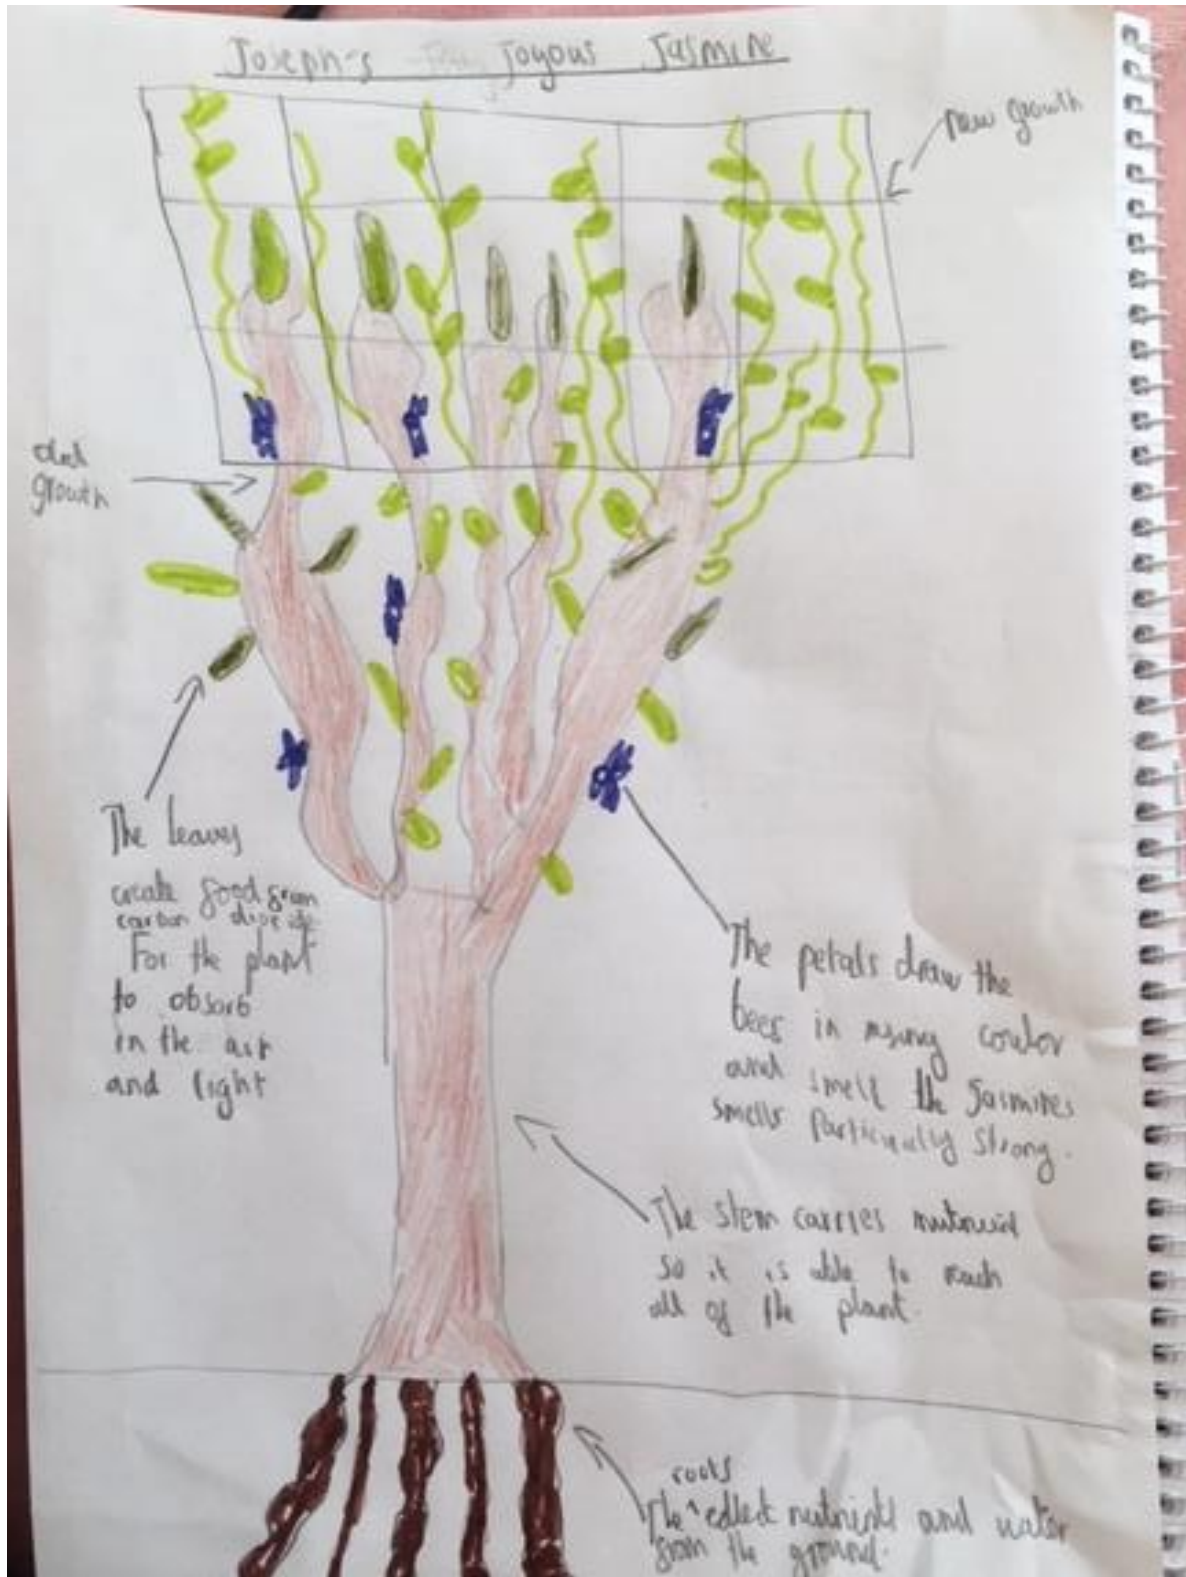 Joseph-s joyous Jasmine
new growth
old
growth
The leaves
create food from
carbon dioxide
For the plant
to obsorb
in the air
and light
The petals draw the
bees in using coulor
and smell the jasmines
smells particually strong.
The stem carries nutrient
so it is able to reach
all of the plant.
roots
The ^ collect nutrients and water
from the ground.